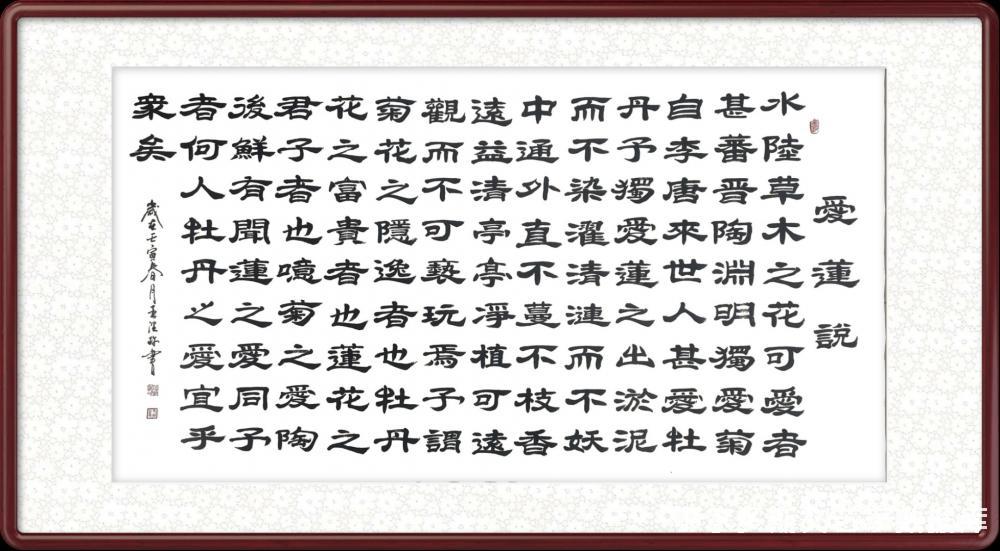 愛蓮說
水陸草木之花可愛者
甚蕃晋陶淵明獨愛菊
自李唐來世人甚愛牡
丹予獨愛蓮之出淤泥
而不染濯清漣而不妖
中通外直不蔓不枝香
遠益清亭亭淨植可遠
觀而不可褻玩焉予謂
菊花之隱逸者也牡丹
花之富貴者也蓮花之
君子者也噫菊之愛陶
後鮮有聞蓮之愛同予
者何人牡丹之愛宜乎
衆矣
歲在壬寅春月王書